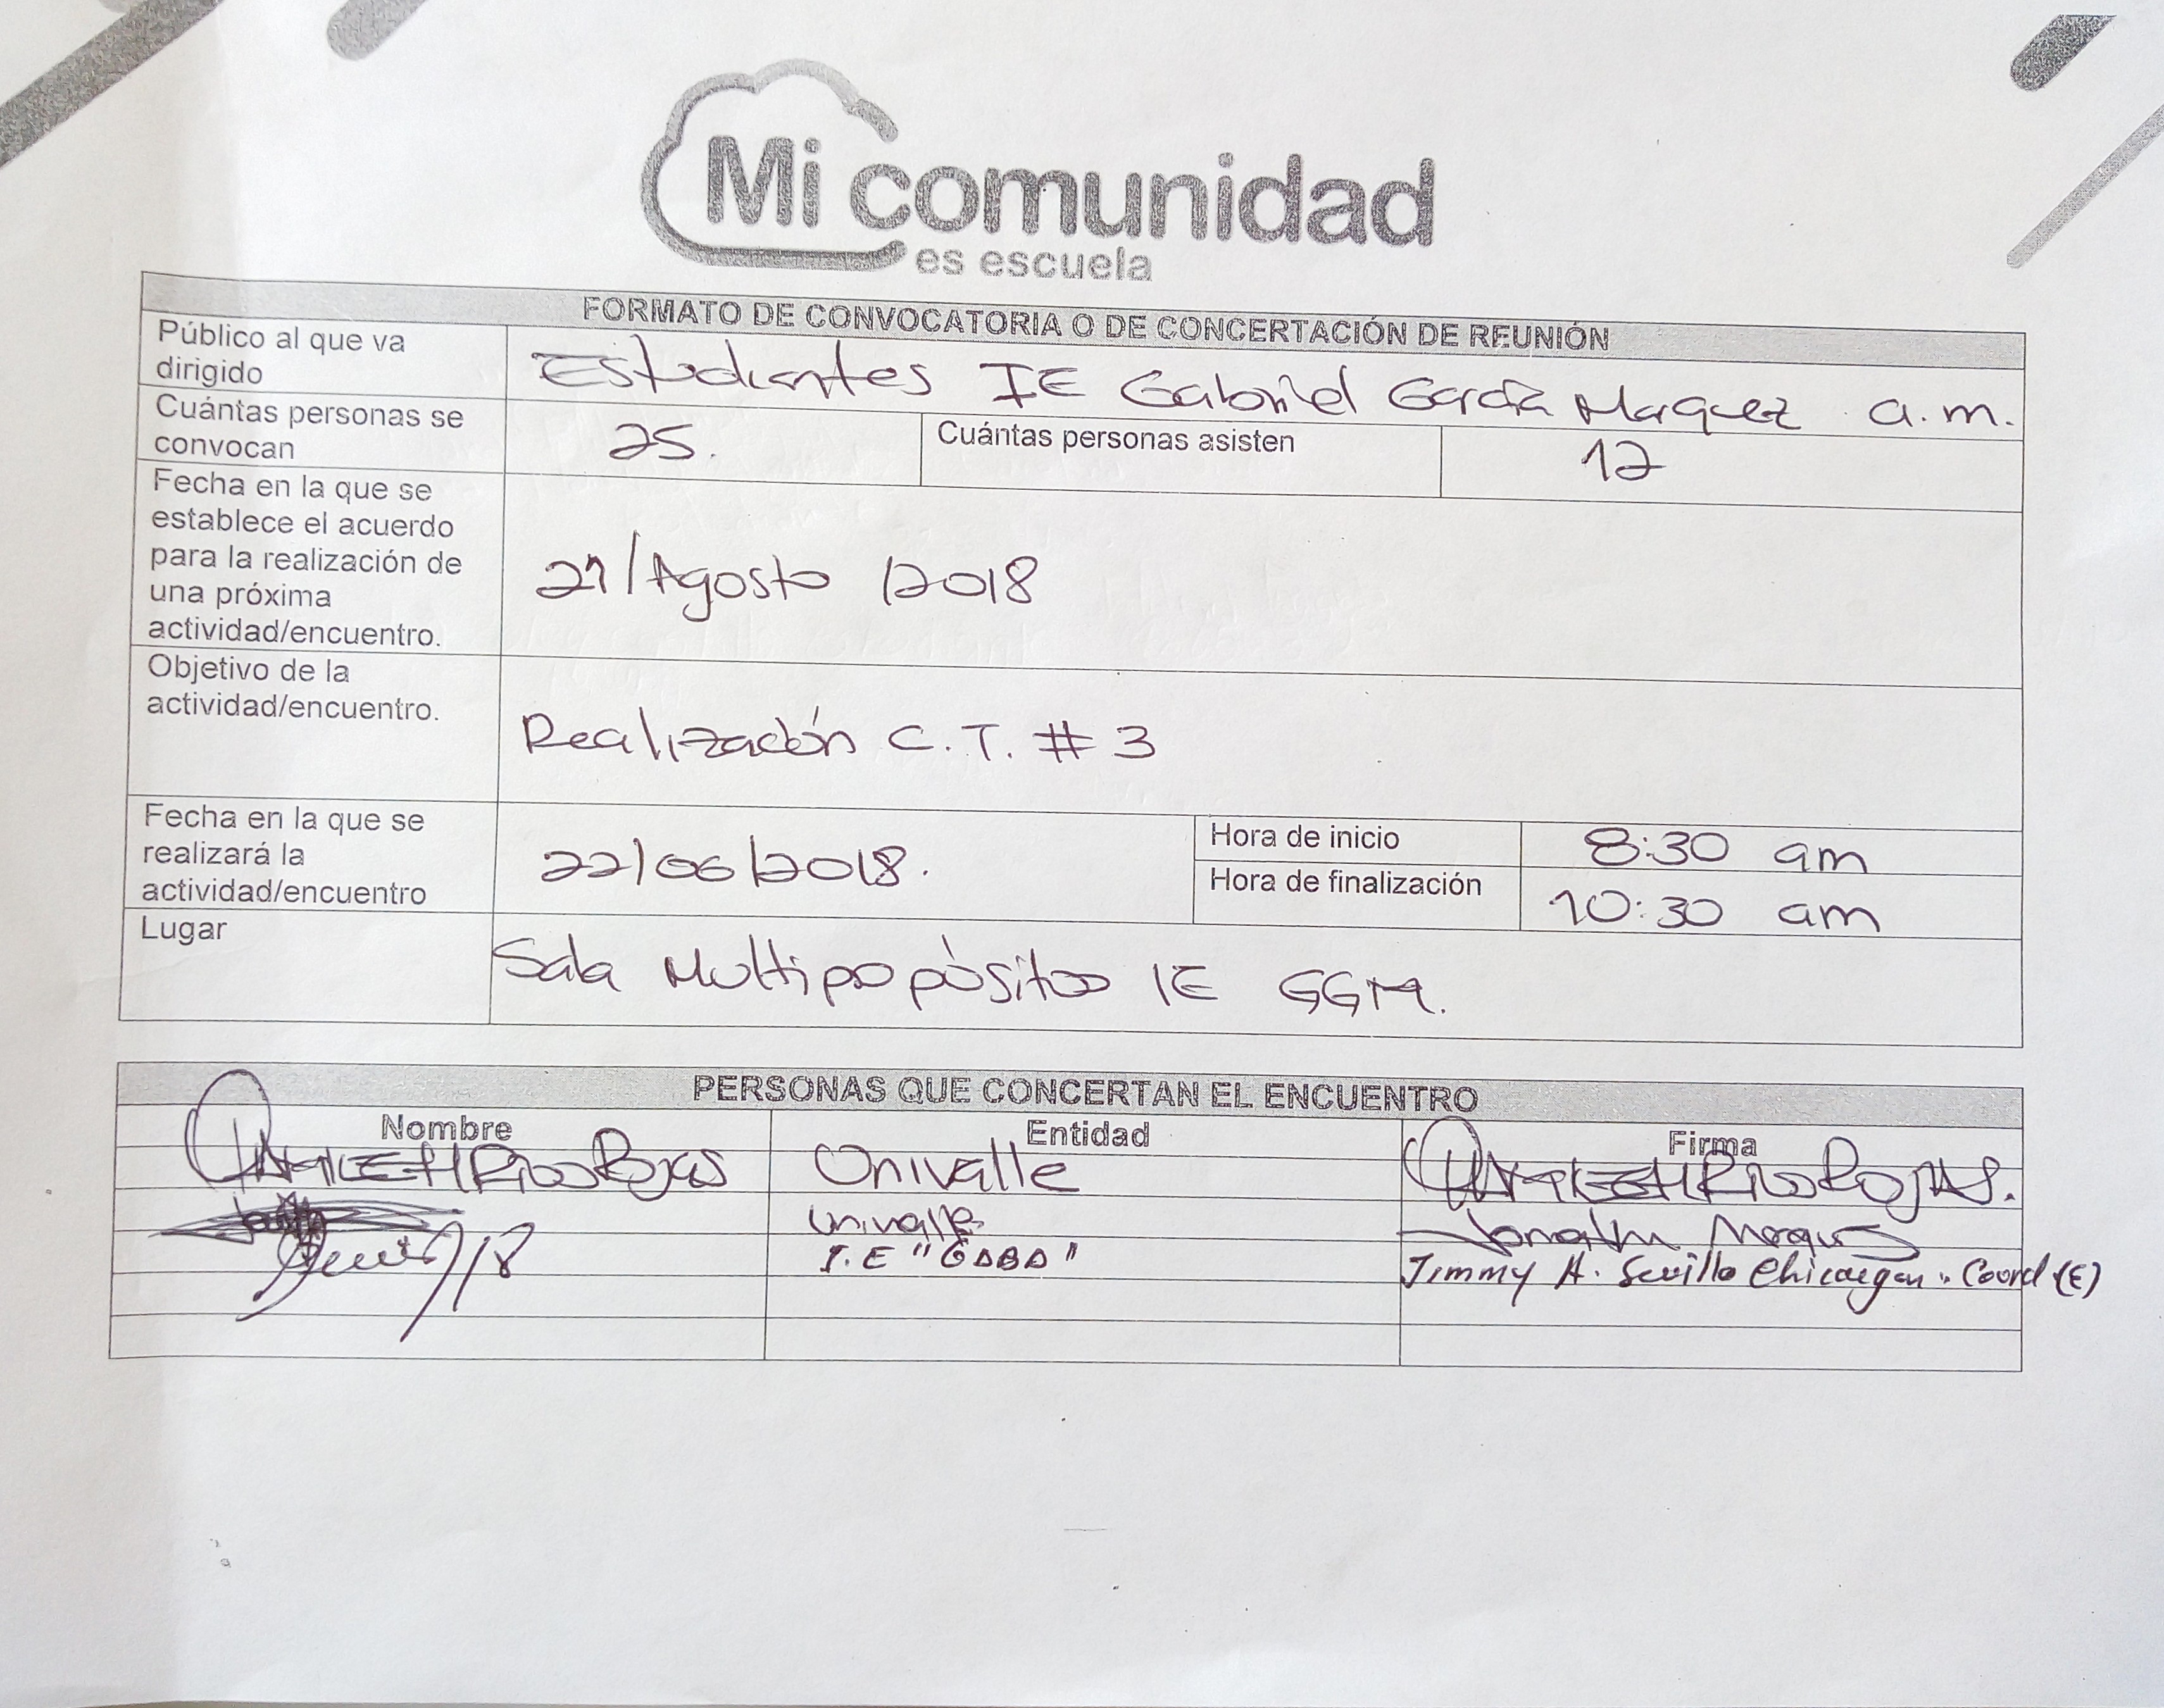 Mi comunidad
es escuela
FORMATO DE CONVOCATORIA O DE CONCERTACIÓN DE REUNIÓN
Público al que va
dirigido
Estudiantes IE Gabriel García Marquez a.m.
Cuántas personas se
convocan
25.
Cuántas personas asisten
12
Fecha en la que se
establece el acuerdo
para la realización de
una próxima
actividad/encuentro.
/Agosto /2018
Objetivo de la
actividad/encuentro.
Realización C.T. # 3
Fecha en la que se
realizará la
actividad/encuentro
22/06/2018.
Hora de inicio
8:30 am
Hora de finalización
10:30 am
Lugar
Sala Multipopósitos IE GGM.
PERSONAS QUE CONCERTAN EL ENCUENTRO
Nombre
Entidad
Firma
Rios Rojas
Univalle
Rios Rojas.
Univalle
Jonathan
I.E "GABO"
Jimmy A. Sevillo Coord (E)